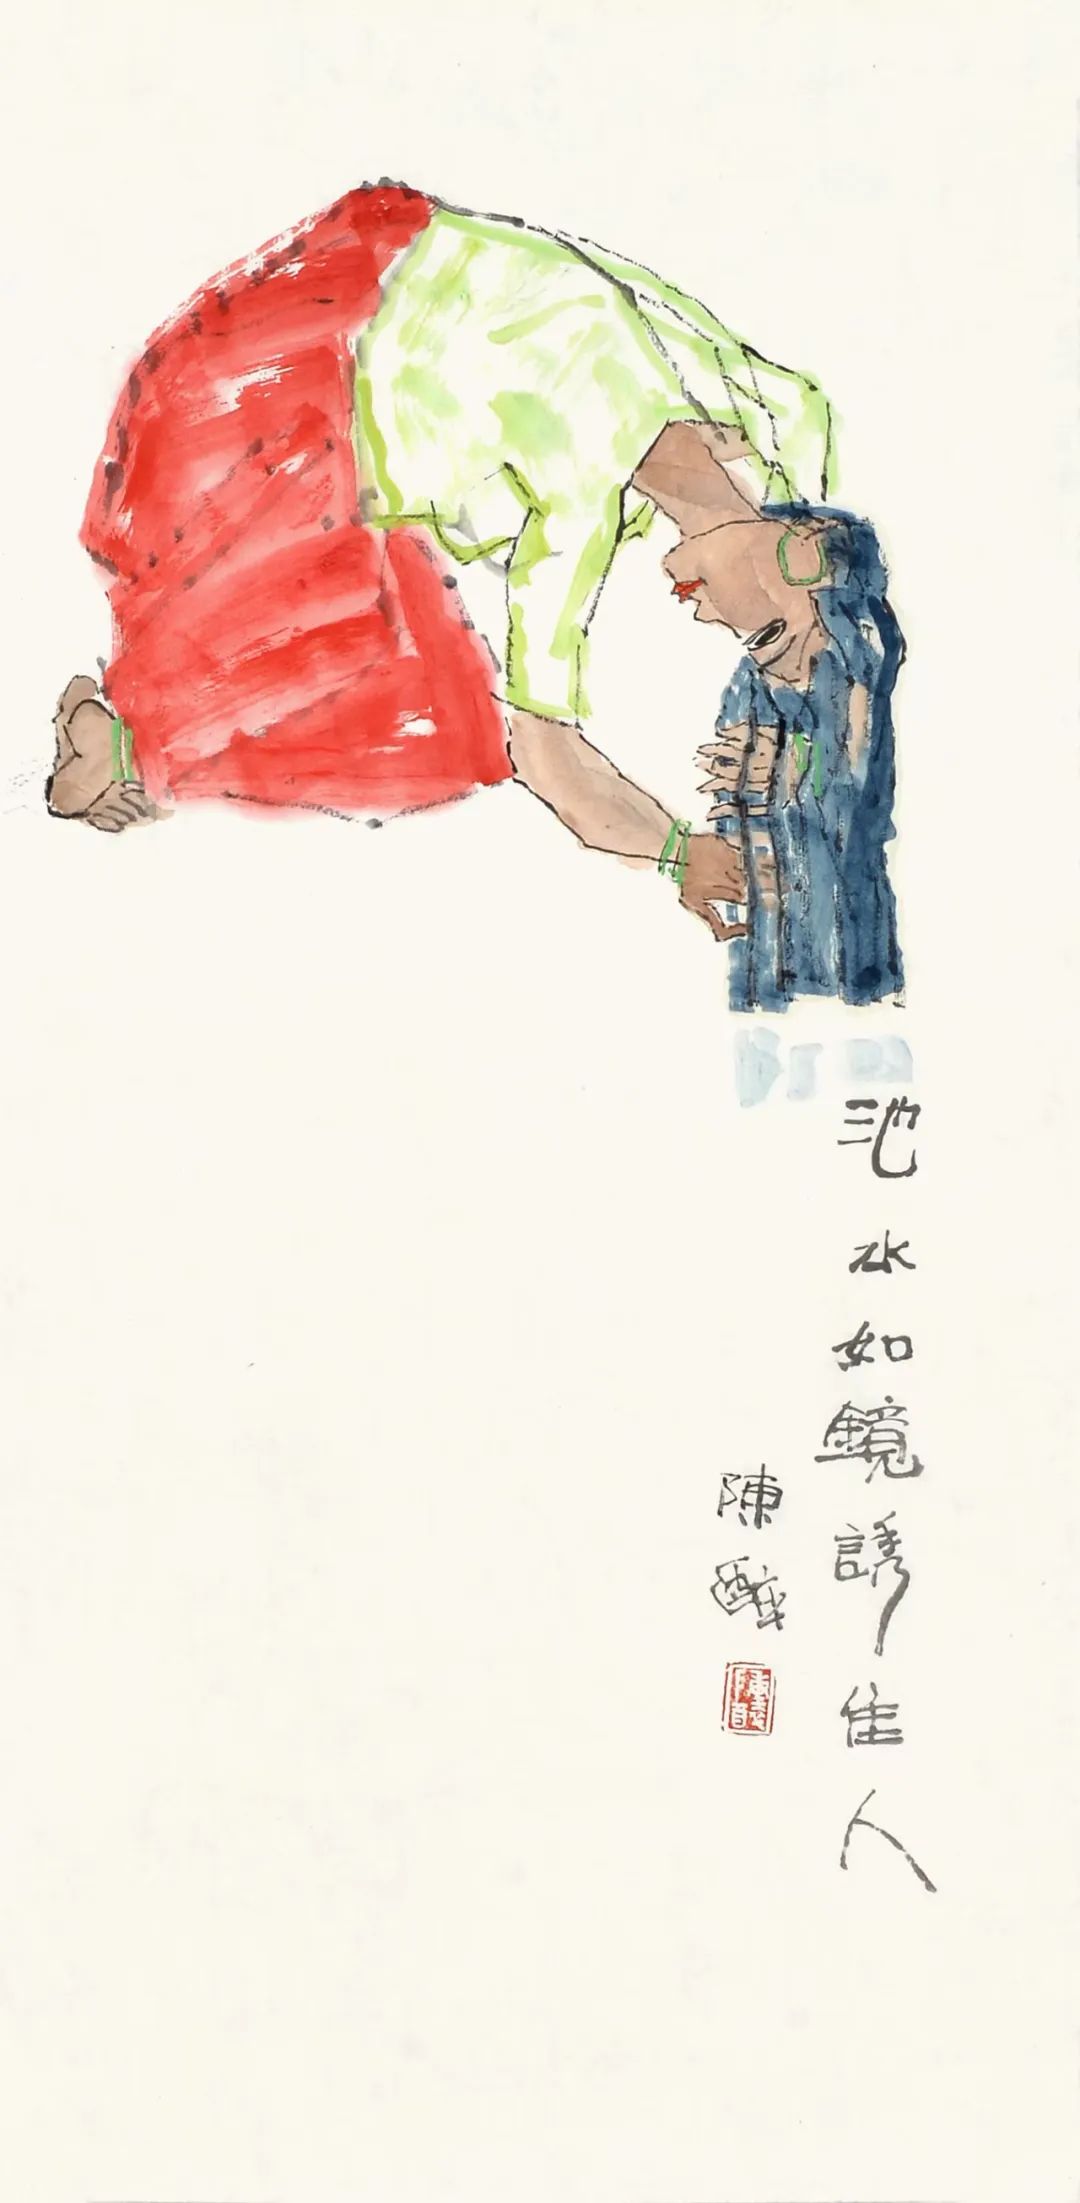 池水如鏡誘佳人
陳醉
陳醉